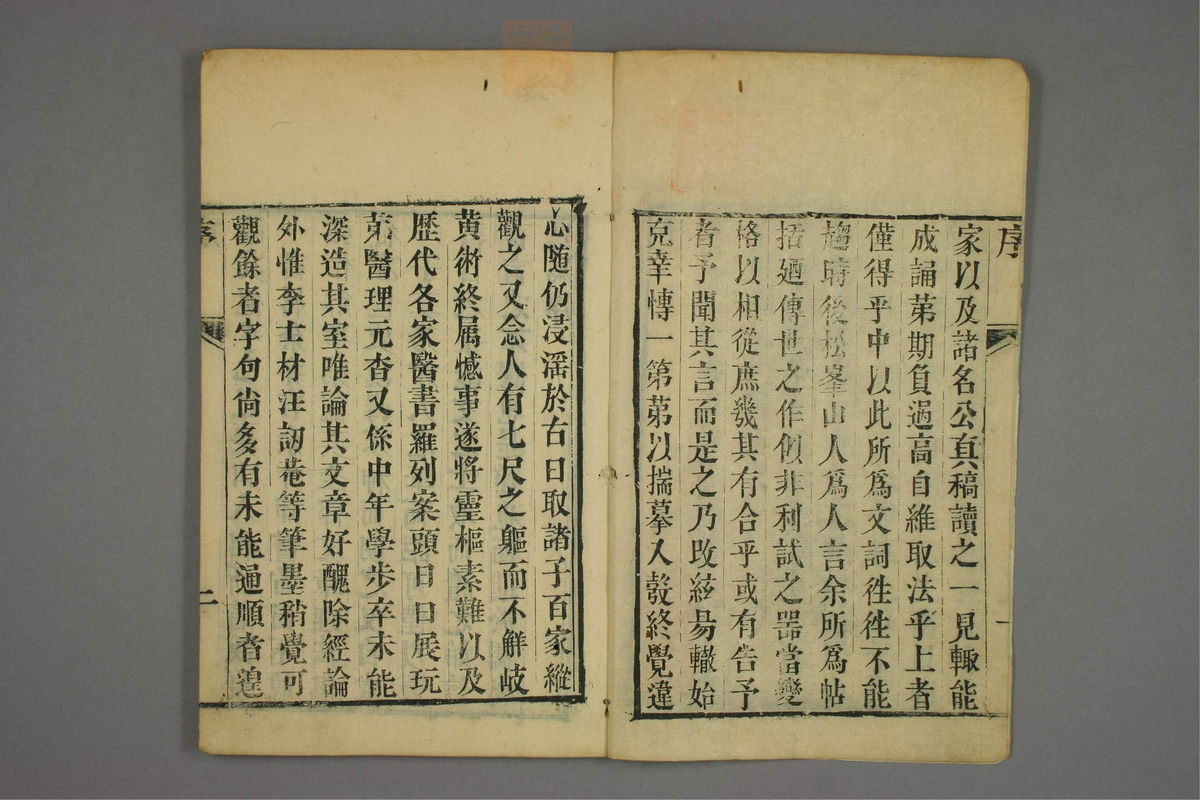 序
家以及諸名公真稿讀之一見輙能
成誦苐期負過高自維取法乎上者
僅得乎中以此所爲文詞徃徃不能
趨時後松峯山人爲人言余所爲帖
括廼傳世之作似非利試之噐當變
格以相從庶幾其有合乎或有告予
者予聞其言而是之乃攺絃昜轍始
克幸慱一第苐以揣摹入彀終覺違
一
心随仍浸滛於古日取諸子百家縱
觀之又念人有七尺之軀而不觧岐
黄術終属憾事遂將靈樞素難以及
歴代各家醫書羅列案頭日日展玩
苐醫理元杳又係中年學步卒未能
深造其室唯論其文章好醜除經論
外惟李士材汪訒菴等筆墨稍覺可
觀餘者字句尙多有未能通順者遑
序
二